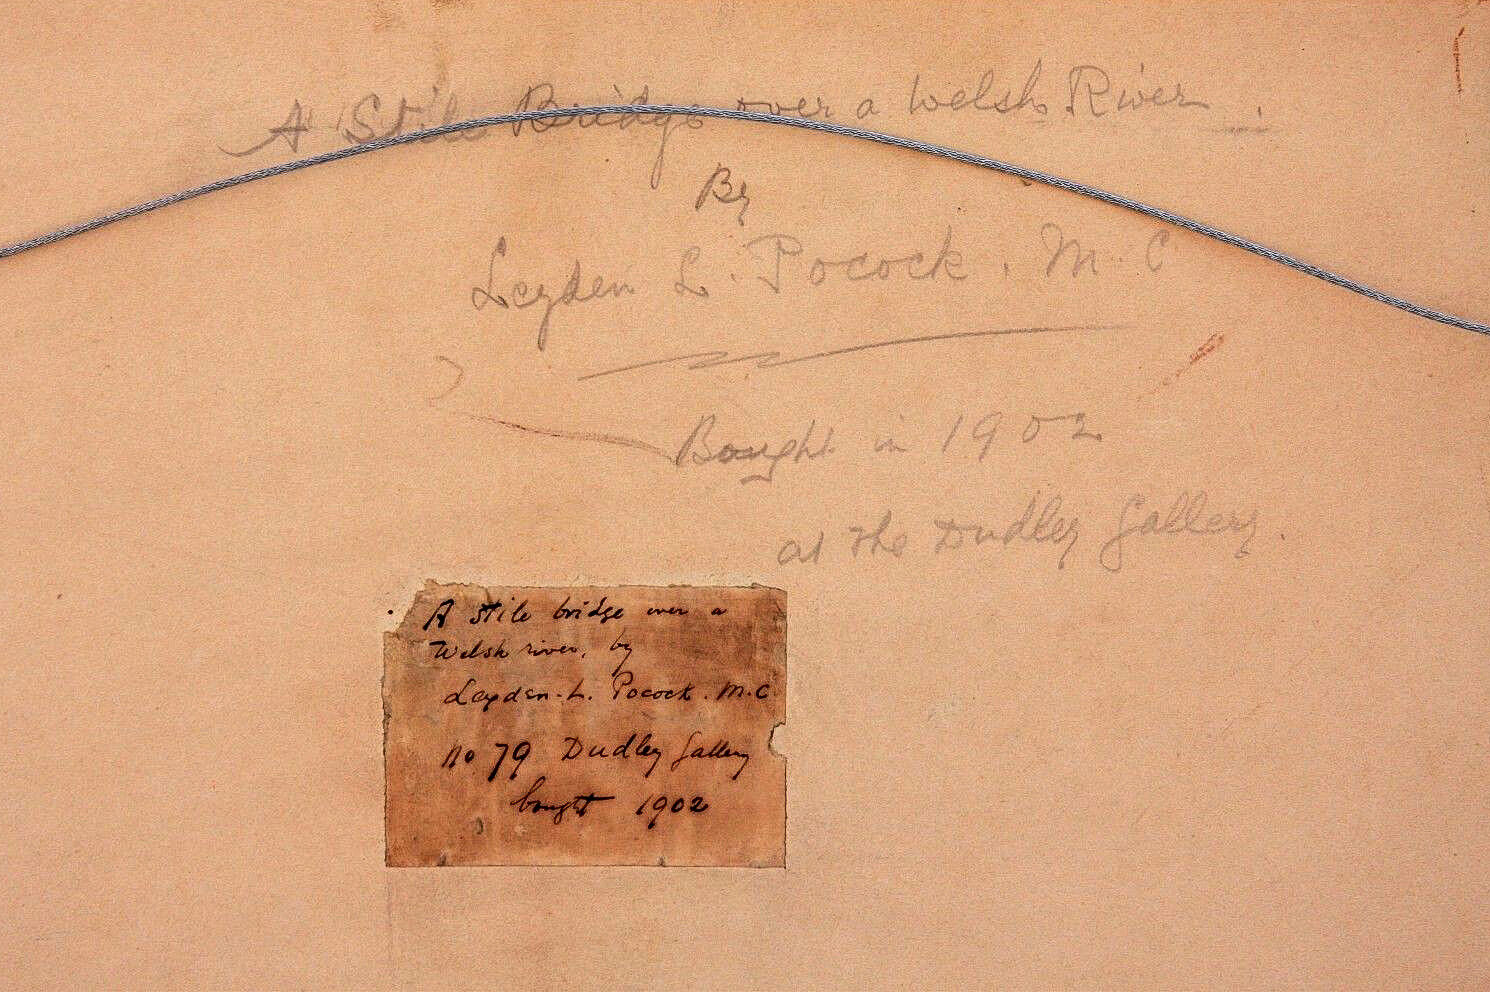 A Stile Bridge over a Welsh River.
By
Leyden L. Pocock. M.C
Bought in 1902
at the Dudley Gallery.
A stile bridge over a
Welsh river, by
Leyden. L. Pocock. M.C.
No 79 Dudley Gallery
bought 1902